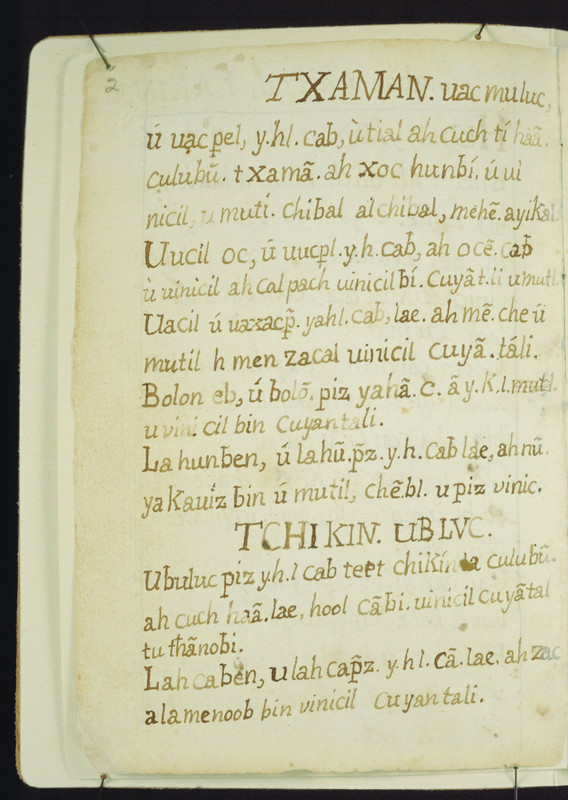 2
TXAMAN. uac muluc,
ú uac p̃el, y.hl. cab, ùtial ah cuch tí haã.
culubũ. txamã. ah xoc hunbí. ú ui
nicil, u mutí. chibal alchibal, mehẽ. ayikal
Uucil oc, ú uucp̃l. y.h. cab, ah ocẽ. cab
ù uinicil ah calpach uinicil bí. cuyãt.li umutl.
Uacil ú uaxxacp̃. yahl. cab, lae. ah mẽ. che ú
mutil h men zacal uinicil cuyã. táli.
Bolon eb, ú bolõ. piz yahã. c. ã y. K.l. mutl.
u vini. cil bin cuyantali.
Lahunben, ú lahũ. p̃z. y.h. cab lae, ah nũ.
ya kauiz bin ú mutil, chẽ.bl. u piz vinic.
TCHIKIN. UBLVC.
Ubuluc piz y.h.l cab teet chikín culubũ.
ah cuch haã. lae, hool cãbi. uinicil cuyãtal
tu thãnobi.
Lah caben, u lah cap̃z. y.hl. cã. lae. ah zac
alamenoob bin vinicil cuyantali.